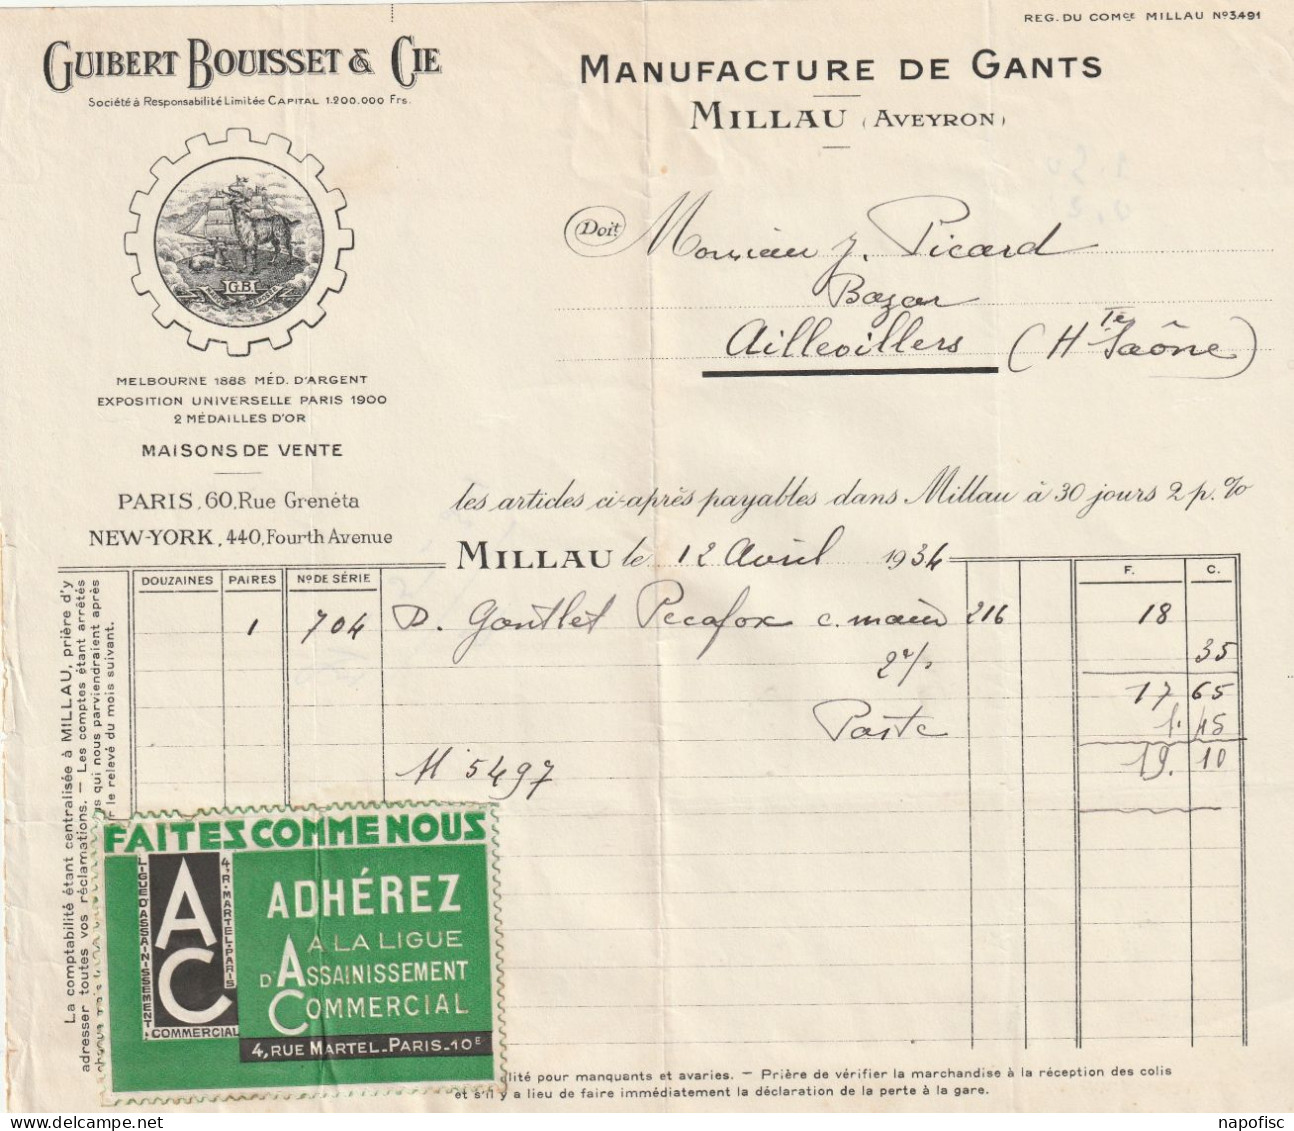 REG. DU COMCE MILLAU No3491
GUIBERT BOUISSET & CIE
Société à Responsabilité Limitée CAPITAL 1.200.000 Frs.
MANUFACTURE DE GANTS
MILLAU (AVEYRON)
G.B.
Doit Monsieur J. Picard
Bazar
Aillevillers (Hte Saône)
MELBOURNE 1888 MÉD. D'ARGENT
EXPOSITION UNIVERSELLE PARIS 1900
2 MÉDAILLES D'OR
MAISONS DE VENTE
PARIS, 60, Rue Grenéta
NEW-YORK, 440, Fourth Avenue
les articles ci-après payables dans Millau à 30 jours 2 p. %
MILLAU le 12 Avril 1934
DOUZAINES PAIRES No DE SÉRIE F. C.
1 704 D. Gantlet Pecafox c. main 216 18
2% 35
17 65
Poste 1. 45
19. 10
M 5497
La comptabilité étant centralisée à MILLAU, prière d'y
adresser toutes vos réclamations. — Les comptes étant arrêtés
qui nous parviendraient après
le relevé du mois suivant.
FAITES COMME NOUS
AC
LIGUE D'ASSAINISSEMENT
COMMERCIAL
4, R. MARTEL-PARIS
ADHÉREZ
A LA LIGUE
D'ASSAINISSEMENT
COMMERCIAL
4, RUE MARTEL-PARIS-10E
lité pour manquants et avaries. — Prière de vérifier la marchandise à la réception des colis
et s'il y a lieu de faire immédiatement la déclaration de la perte à la gare.
napofisc